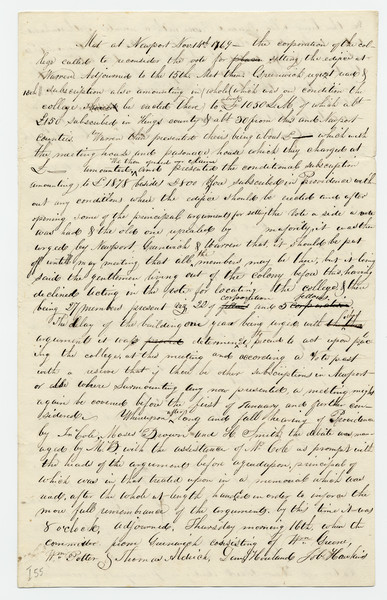 Met at Newport Nov. 14th 1769 — the corporation of the col-
lege called to reconsider the vote for place setting the edifice at
Warren Adjourned to the 15th. Met then Greenwich urged and
subscription also amounting in whole which was on condition the
college should be erected there to £ 1050 LM, of which abt
£150 subscribed in Kings county & abt 30 from this and Newport
Counties. Warren then presented theirs being about £ — which with
the meeting house and parsonage house, which they charged at
£ — amounted and presented the conditional subscription
amounting to £ 1878 beside £ 400 subscribed in Providence with
out any conditions where the edifice should be erected and after
opening some of the principal arguments for setting the vote a side a vote
was had & the old one repealed by majority, it was then
urged by Newport, Greenwich & Warren that it should be put
off until May meeting that all the members may be there, but it being
said the gentlemen living out of the colony before this having
declined voting in the vote for locating the college & there
being 27 members present 22 of corporation and 5 fellows
The delay of the building one year being urged with
argument it was determined to act upon pla
cing the college at this meeting and according a vote past
with a reserve that if there be other subscriptions in Newport
or where surmounting any now presented, a meeting might
again be convened before the first of January and further con-
sidered. Whereupon after long and full hearing of Providence
by Jno Cole, Moses Brown and H. Smith, the debate was man-
aged by M B with the assistance of Mr. Cole as prompt with
the heads of the arguments before agreed upon, principal of
which was in that treated upon in a memorial which was
read, after the whole at length, handed in order to inform the
more full remembrance of the arguments. by this time it was
8 o'clock, adjourned. Thursday morning 16th, when the
committee from Greenwich consisting of Wm Greene,
Wm Potter & Thomas Aldrich, Danl Howland Job Hawkins
T 55